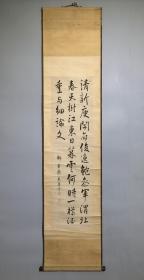 清新庾開府俊逸鮑參軍渭北
春天樹江東日暮雲何時一樽酒
重与細論文